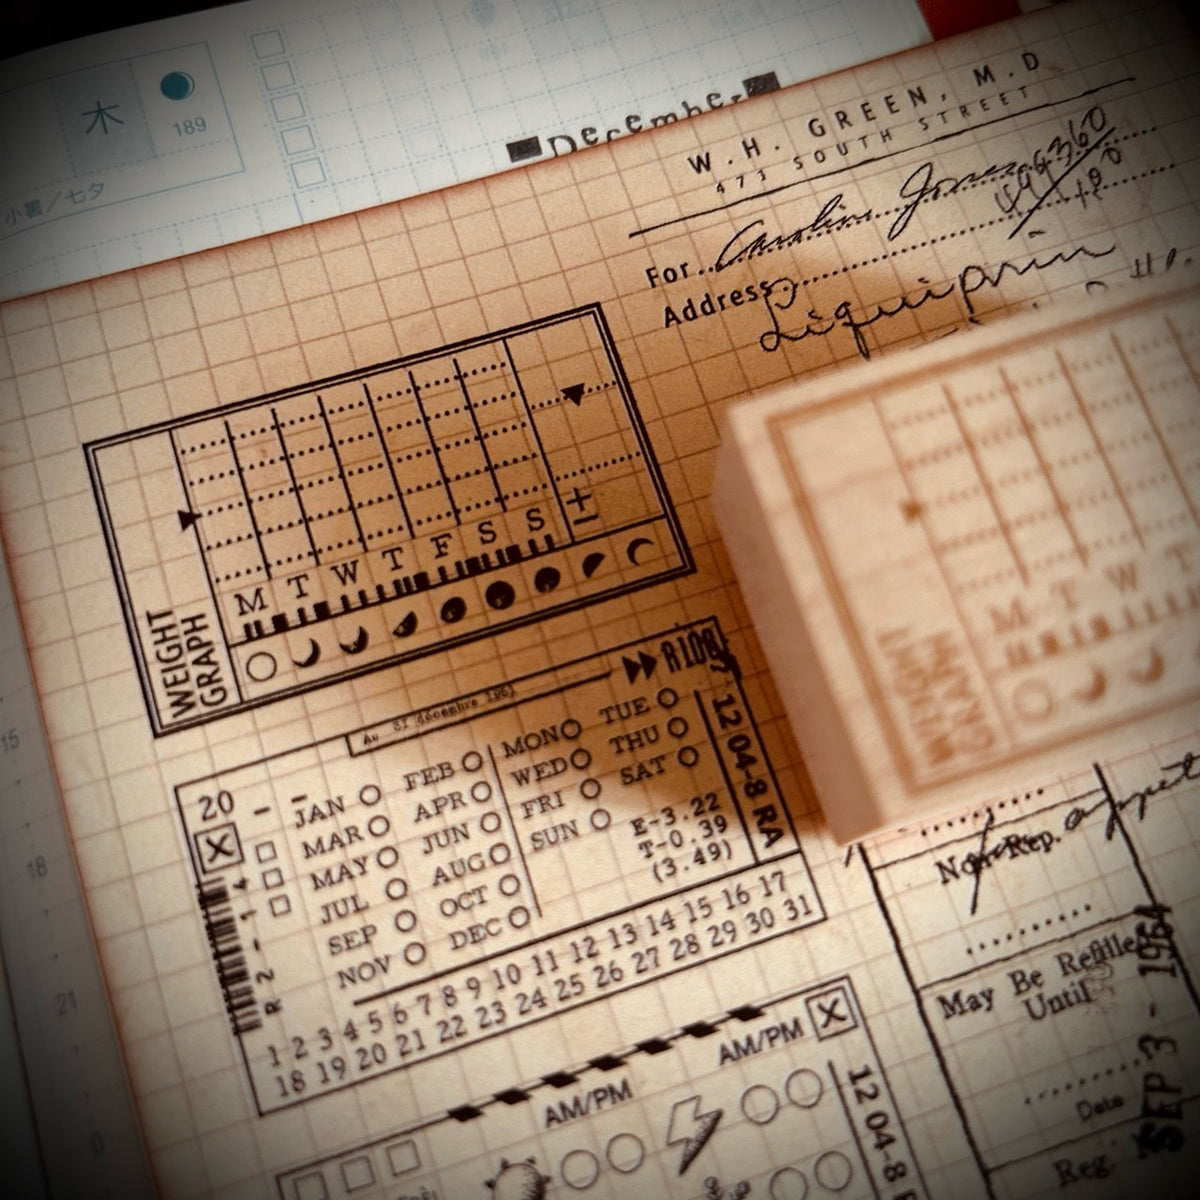 木
189
小暑／七夕
December
W.H. GREEN, M.D
473 SOUTH STREET
For Caroline Jones
Address
Liquiprin
WEIGHT
GRAPH
M T W T F S S ±
Au 31 décembre 1951
20 - -
JAN FEB
MAR APR
MAY JUN
JUL AUG
SEP OCT
NOV DEC
MON TUE
WED THU
FRI SAT
SUN
E-3.22
T-0.39
(3.49)
12 04-8 RA
R 2 - 1 4
1 2 3 4 5 6 7 8 9 10 11 12 13 14 15 16 17
18 19 20 21 22 23 24 25 26 27 28 29 30 31
AM/PM
AM/PM
12 04-8
WEIGHT
GRAPH
M T W T
Non-Rep.
May Be Refilled
Until
Date
Reg.
SEP 3 - 1964
15
18
21
0